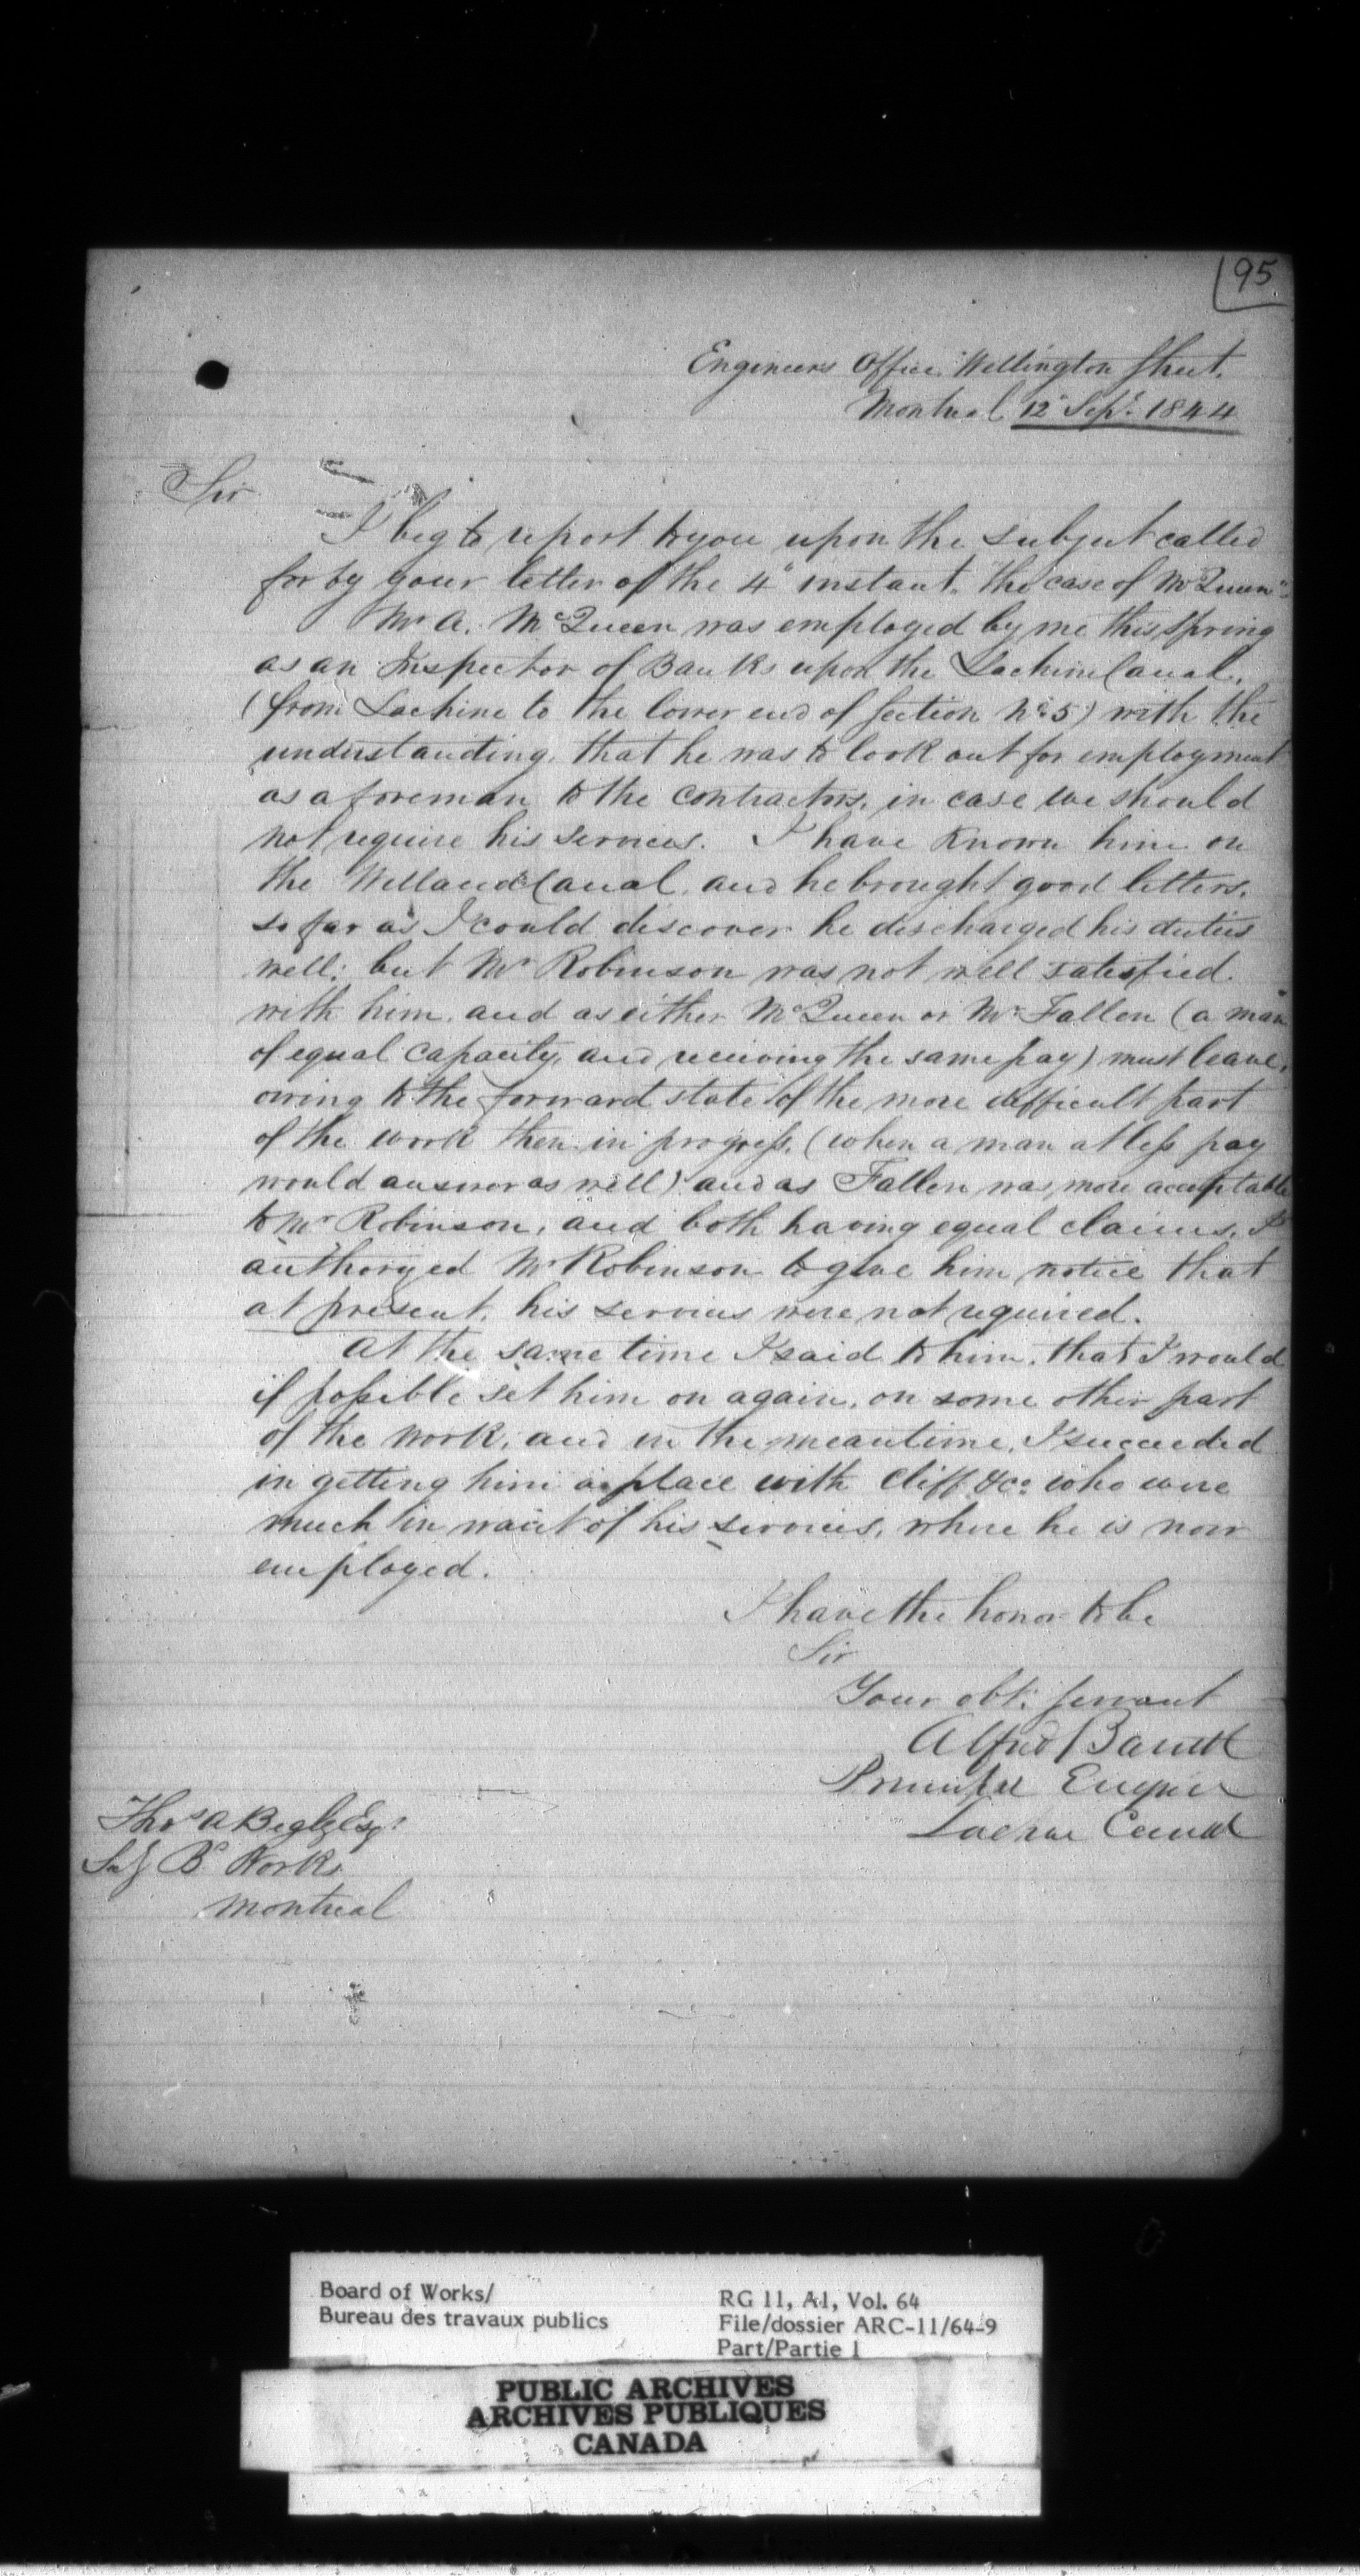 95
Engineers Office Wellington Street.
Montreal 12" Sept. 1844
Sir
I beg to report to you upon the subject called
for by your letter of the 4" instant. the case of McQueen"
Mr A. McQueen was employed by me this spring
as an Inspector of Banks upon the Lachine Canal,
(from Lachine to the lower end of section No 5) with the
understanding, that he was to look out for employment
as a foreman to the contractors, in case we should
not require his services. I have known him on
the Welland Canal, and he brought good letters,
so far as I could discover he discharged his duties
well; but Mr Robinson was not well satisfied
with him, and as either McQueen or Mr Fallon (a man
of equal capacity, and receiving the same pay) must leave,
owing to the forward state of the more difficult part
of the work then in progress, (when a man at less pay
would answer as well) and as Fallon was more acceptable
to Mr Robinson, and both having equal claims, I
authorized Mr Robinson to give him notice that
at present, his services were not required.
At the same time I said to him, that I would
if possible set him on again, on some other part
of the work, and in the meantime, I succeeded
in getting him a place with Cliff & Co. who were
much in want of his services, where he is now
employed.
I have the honor to be
Sir
Your obt. servant
Alfred Barrett
Principal Engineer
Lachine Canal
Thos A Begly Esqr
Secy Bd Works
Montreal
Board of Works/
Bureau des travaux publics
RG 11, A1, Vol. 64
File/dossier ARC-11/64-9
Part/Partie 1
PUBLIC ARCHIVES
ARCHIVES PUBLIQUES
CANADA